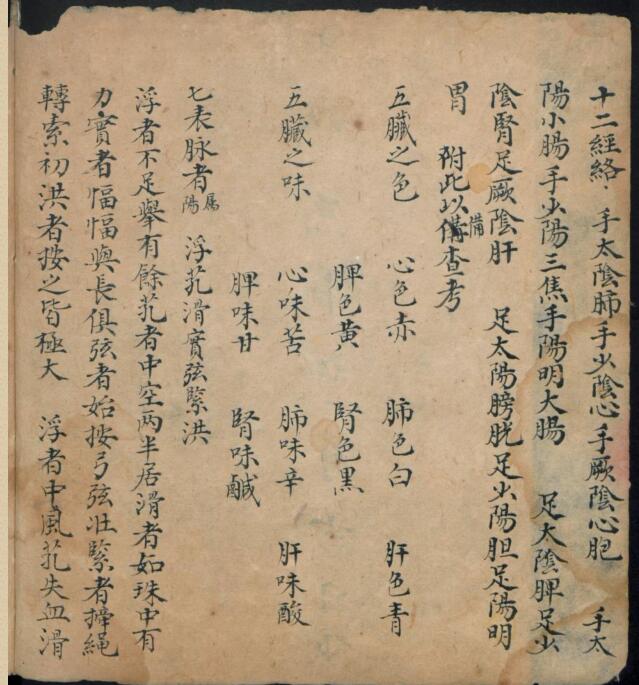 十二經絡 手太陰肺手少陰心手厥陰心胞 手太
陽小腸手少陽三焦手陽明大腸 足太陰脾足少
陰腎足厥陰肝 足太陽膀胱足少陽胆足陽明
胃 附此以備查考
備
五臟之色 心色赤 肺色白 肝色青
脾色黃 腎色黑
五臟之味 心味苦 肺味辛 肝味酸
脾味甘 腎味鹹
七表脉者屬陽 浮芤滑實弦緊洪
浮者不足舉有餘芤者中空两半居滑者如珠中有
力實者愊愊與長俱弦者始按弓弦壯緊者㨄繩
轉索初洪者按之皆極大 浮者中風芤失血滑